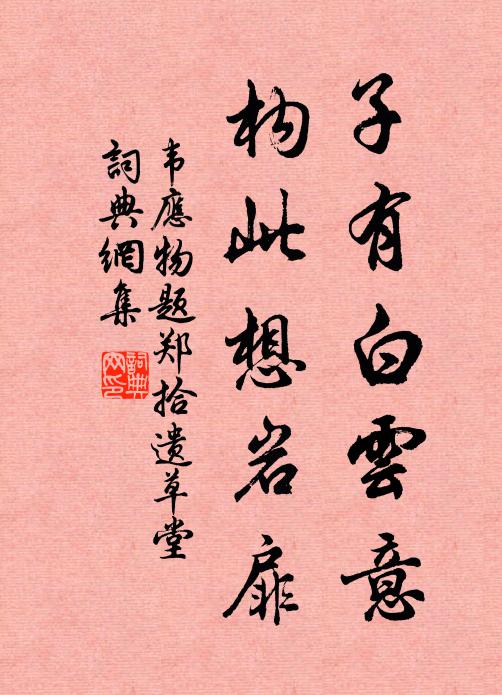 子有白雲意
构此想岩扉
韦應物题郑拾遗草堂
詞典網集
詞典网印